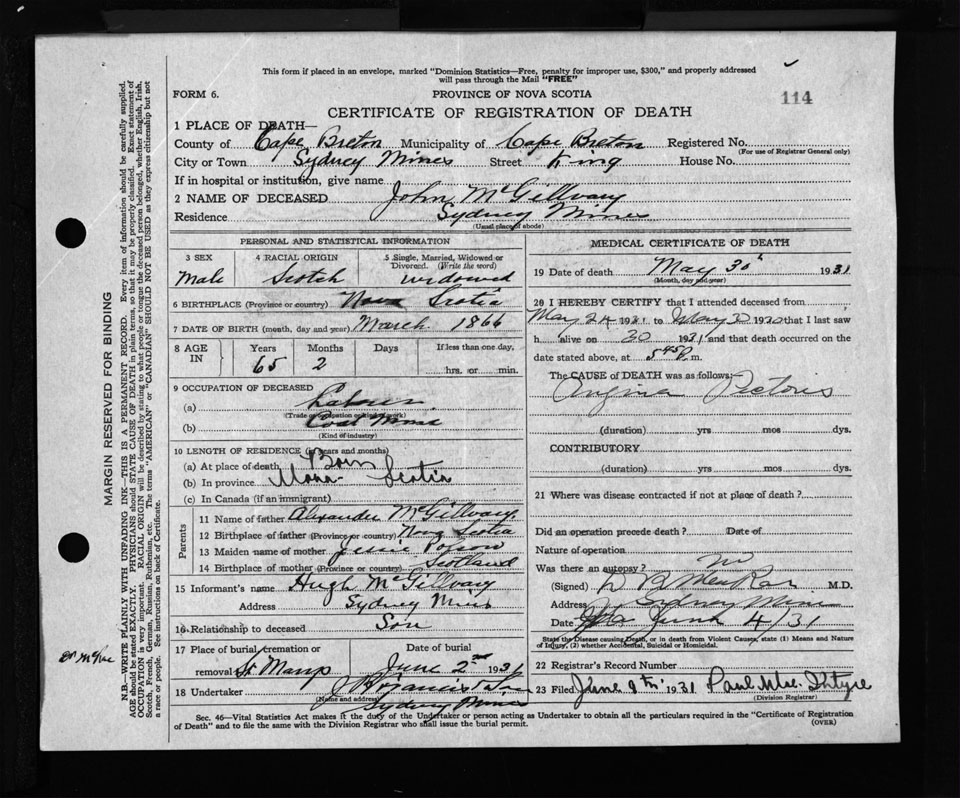 This form if placed in an envelope, marked "Dominion Statistics—Free, penalty for improper use, $300," and properly addressed
will pass through the Mail "FREE"
FORM 6. PROVINCE OF NOVA SCOTIA 114
CERTIFICATE OF REGISTRATION OF DEATH
1 PLACE OF DEATH—
County of Cape Breton Municipality of Cape Breton Registered No.
(For use of Registrar General only)
City or Town Sydney Mines Street King House No.
If in hospital or institution, give name
2 NAME OF DECEASED John McGillvary
Residence Sydney Mines
(Usual place of abode)
PERSONAL AND STATISTICAL INFORMATION
3 SEX 4 RACIAL ORIGIN 5 Single, Married, Widowed or
Divorced. (Write the word)
Male Scotch widowed
6 BIRTHPLACE (Province or country) Nova Scotia
7 DATE OF BIRTH (month, day and year) March 1866
8 AGE IN Years Months Days If less than one day,
65 2 hrs. or min.
9 OCCUPATION OF DECEASED
(a)
(Trade or occupation or kind of work)
(b) Coal Mines
(Kind of industry)
10 LENGTH OF RESIDENCE (in years and months)
(a) At place of death Born
(b) In province Nova Scotia
(c) In Canada (if an immigrant)
Parents
11 Name of father Alexander McGillvary
12 Birthplace of father (Province or country) Nova Scotia
13 Maiden name of mother
14 Birthplace of mother (Province or country) Scotland
15 Informant's name Hugh McGillvary
Address Sydney Mines
16 Relationship to deceased Son
17 Place of burial, cremation or Date of burial
removal June 2nd 1931
18 Undertaker
(Name and address)
Sydney Mines
MEDICAL CERTIFICATE OF DEATH
19 Date of death May 30 1931
(Month, day and year)
20 I HEREBY CERTIFY that I attended deceased from
May 24 1931 to May 30 1930 that I last saw
h alive on 30 1931 and that death occurred on the
date stated above, at 5 45 P. m.
The CAUSE OF DEATH was as follows:
Angina Pectoris
(duration) yrs mos dys.
CONTRIBUTORY
(duration) yrs mos dys.
21 Where was disease contracted if not at place of death?
Did an operation precede death? Date of
Nature of operation
Was there an autopsy? no
(Signed) M.D.
Address Sydney Mines
Date June 4/31
State the Disease causing Death, or in death from Violent Causes, state (1) Means and Nature
of Injury, (2) whether Accidental, Suicidal or Homicidal.
22 Registrar's Record Number
23 Filed June 9th 1931 Paul
(Division Registrar)
Sec. 46—Vital Statistics Act makes it the duty of the Undertaker or person acting as Undertaker to obtain all the particulars required in the "Certificate of Registration
of Death" and to file the same with the Division Registrar who shall issue the burial permit. (OVER)
MARGIN RESERVED FOR BINDING
N.B.—WRITE PLAINLY WITH UNFADING INK—THIS IS A PERMANENT RECORD. Every item of information should be carefully supplied.
AGE should be stated EXACTLY. PHYSICIANS should STATE CAUSE OF DEATH in plain terms, so that it may be properly classified. Exact statement of
OCCUPATION is very important. RACIAL ORIGIN will be described by stating to what people or tongue the deceased person belonged, whether English, Irish,
Scotch, French, German, Russian, Ruthenian, etc. The terms "AMERICAN" or "CANADIAN" SHOULD NOT BE USED as they express citizenship but not
a race or people. See instructions on back of Certificate.